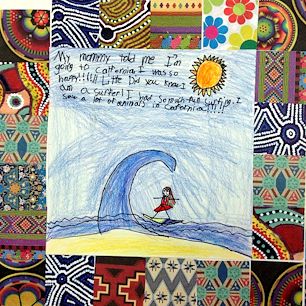 My mommy told me I'm
going to California. I was so
happy!!!!! Little Did you know I
am a surfer! I had so much fun surfing. I
saw a lot of animals in California!!!!!